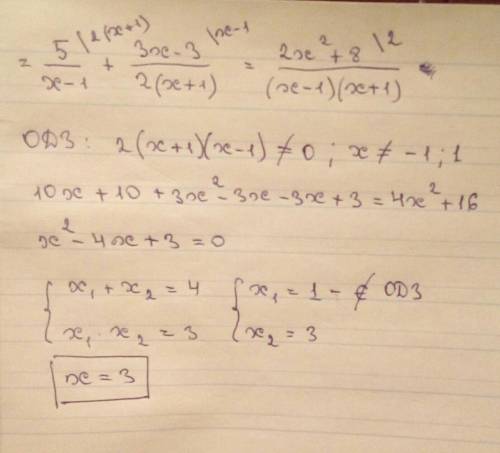 = 5/(x-1) |2(x+1) + (3x-3)/(2(x+1)) |x-1 = (2x²+8)/((x-1)(x+1)) |2
ОДЗ: 2(x+1)(x-1) ≠ 0 ; x ≠ -1 ; 1
10x + 10 + 3x² - 3x - 3x + 3 = 4x² + 16
x² - 4x + 3 = 0
{ x₁ + x₂ = 4 { x₁ = 1 - ∉ ОДЗ
x₁ · x₂ = 3 x₂ = 3
x = 3